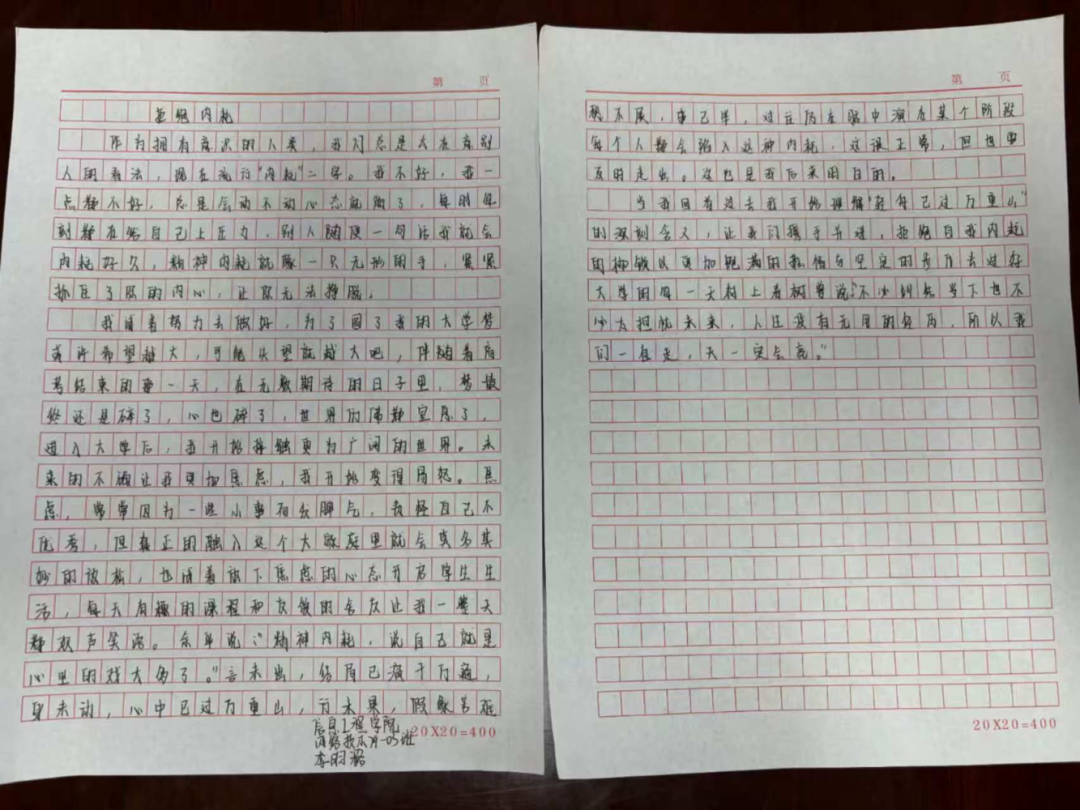 第 页
拒绝内耗
作为拥有意识的人类，我们总是太在意别
人的看法，现在流行"内耗"二字。我不好，我一
点都不好，总是会动不动心态就崩了，每时每
刻都在给自己上压力，别人随便一句话我就会
内耗好久，精神内耗就像一只无形的手，紧紧
抓住了我的内心，让你无法挣脱。
我试着努力去做好，为了圆了我的大学梦
或许希望越大，可能失望就越大吧，伴随着高
考结束的第一天，在无数期待的日子里，梦最
终还是碎了，心也碎了，世界仿佛都窒息了，
进入大学后，我开始接触更为广阔的世界。未
来的不确让我更加焦虑，我开始变得易怒。焦
虑，常常因为一些小事和发脾气，我怪自己不
优秀，但真正的融入这个大家庭里就会莫名其
妙的放松，也试着放下焦虑的心态开启学生生
活，每天有趣的课程和友谊的舍友让我一整天
都欢声笑语。余华说："精神内耗，说自己就是
心里的戏太多了。"言未出，结局已演千万遍，
身未动，心中已过万重山，行未果，假象苦难
愁不展，事已毕，过往仍在脑中演在某个阶段
每个人都会陷入这种内耗，这很正常，但也要
及时走出。这也是我后来明白的。
当我回看过去我开始理解"轻舟已过万重山"
的深刻含义，让我们携手并进，拒绝自我内耗
的枷锁以更加饱满的热情与坚定的步伐去过好
大学的每一天村上春树曾说"不必纠结当下也不
必太担忧未来，人生没有无用的经历，所以我
们一直走，天一定会亮。"
20X20=400
信息工程学院
李明潞
第 页
20X20=400